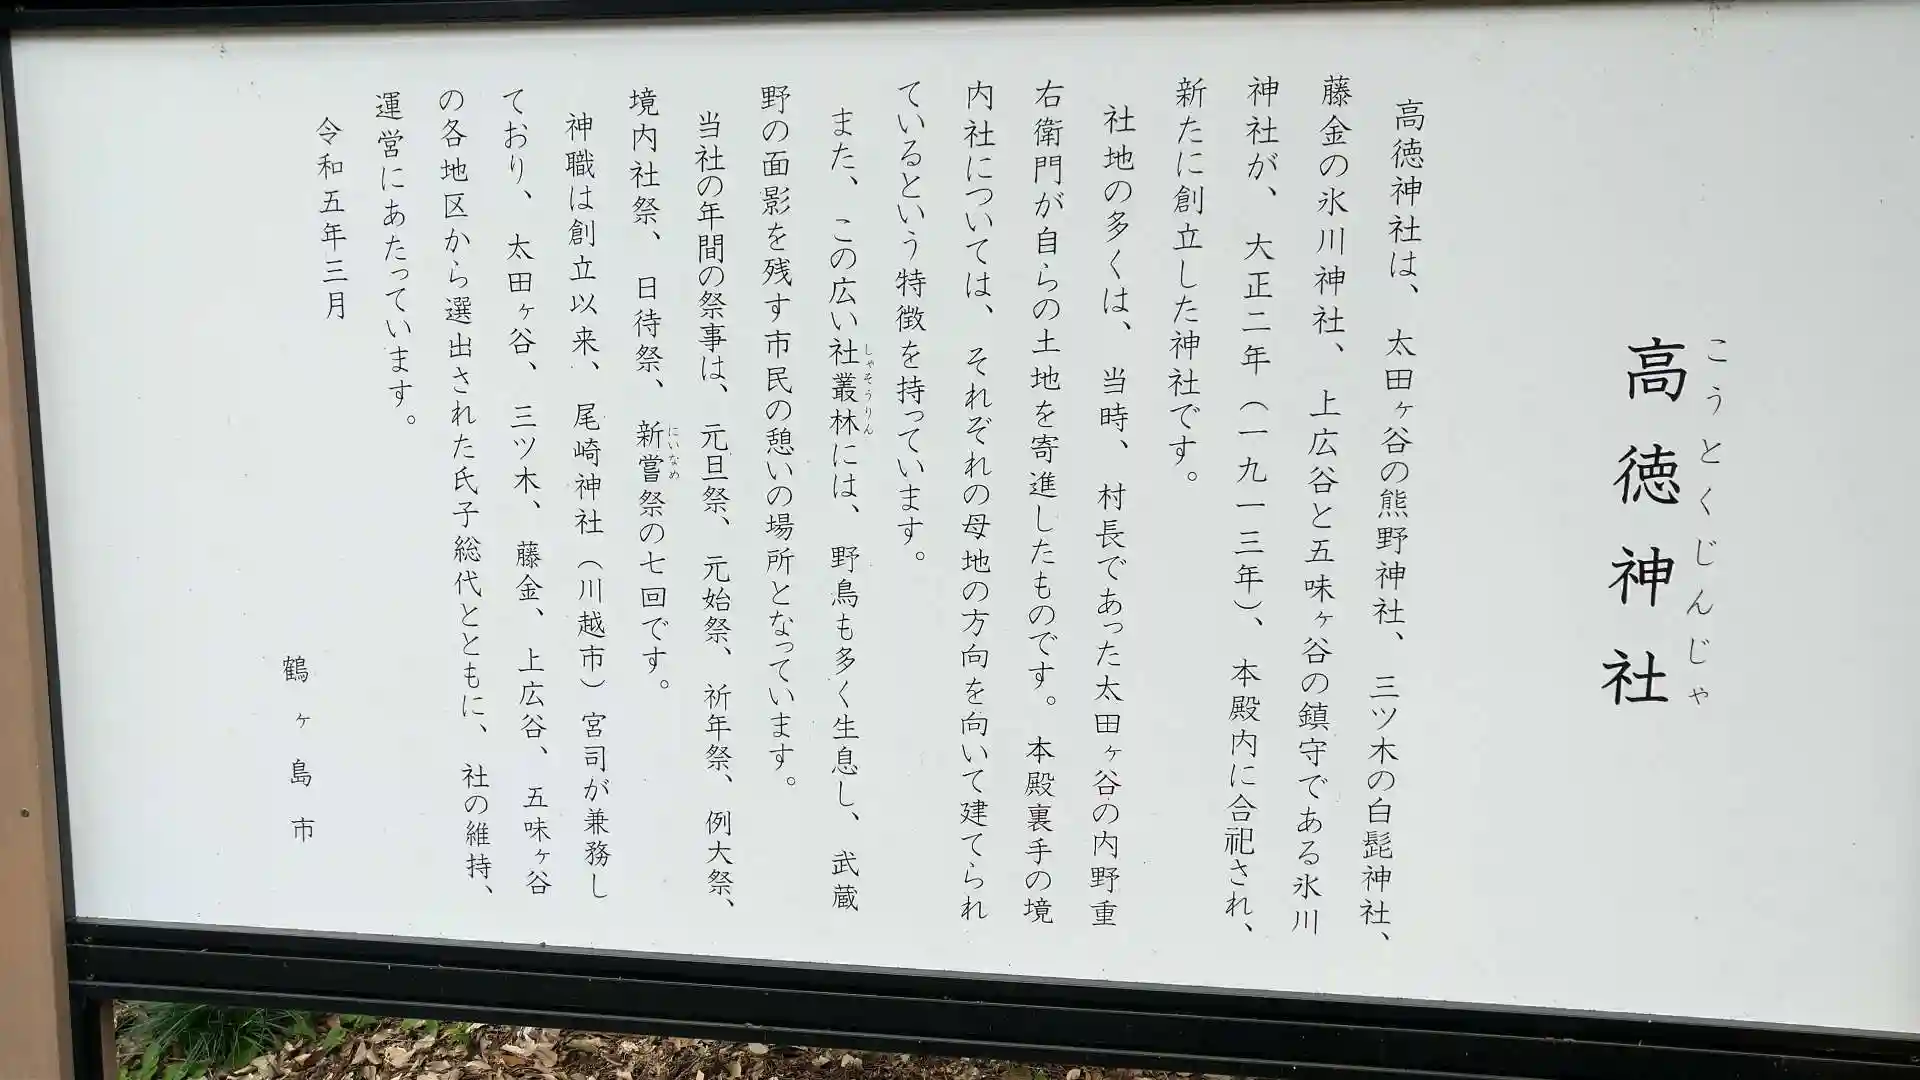 こうとくじんじゃ
高徳神社
高徳神社は、太田ヶ谷の熊野神社、三ツ木の白髭神社、
藤金の氷川神社、上広谷と五味ヶ谷の鎮守である氷川
神社が、大正二年（一九一三年）、本殿内に合祀され、
新たに創立した神社です。
社地の多くは、当時、村長であった太田ヶ谷の内野重
右衛門が自らの土地を寄進したものです。本殿裏手の境
内社については、それぞれの母地の方向を向いて建てられ
ているという特徴を持っています。
また、この広い社叢林には、野鳥も多く生息し、武蔵
しゃそうりん
野の面影を残す市民の憩いの場所となっています。
当社の年間の祭事は、元旦祭、元始祭、祈年祭、例大祭、
境内社祭、日待祭、新嘗祭の七回です。
にいなめ
神職は創立以来、尾崎神社（川越市）宮司が兼務し
ており、太田ヶ谷、三ツ木、藤金、上広谷、五味ヶ谷
の各地区から選出された氏子総代とともに、社の維持、
運営にあたっています。
令和五年三月
鶴ヶ島市